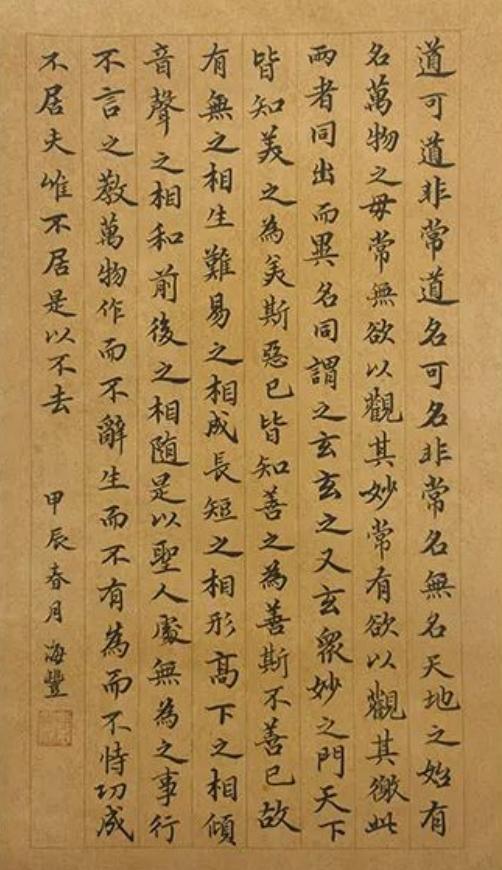 道可道非常道名可名非常名無名天地之始有
名萬物之母常無欲以觀其妙常有欲以觀其徼此
兩者同出而異名同謂之玄玄之又玄眾妙之門天下
皆知美之為美斯惡已皆知善之為善斯不善已故
有無之相生難易之相成長短之相形高下之相傾
音聲之相和前後之相隨是以聖人處無為之事行
不言之教萬物作而不辭生而不有為而不恃功成
不居夫唯不居是以不去
甲辰春月海豐